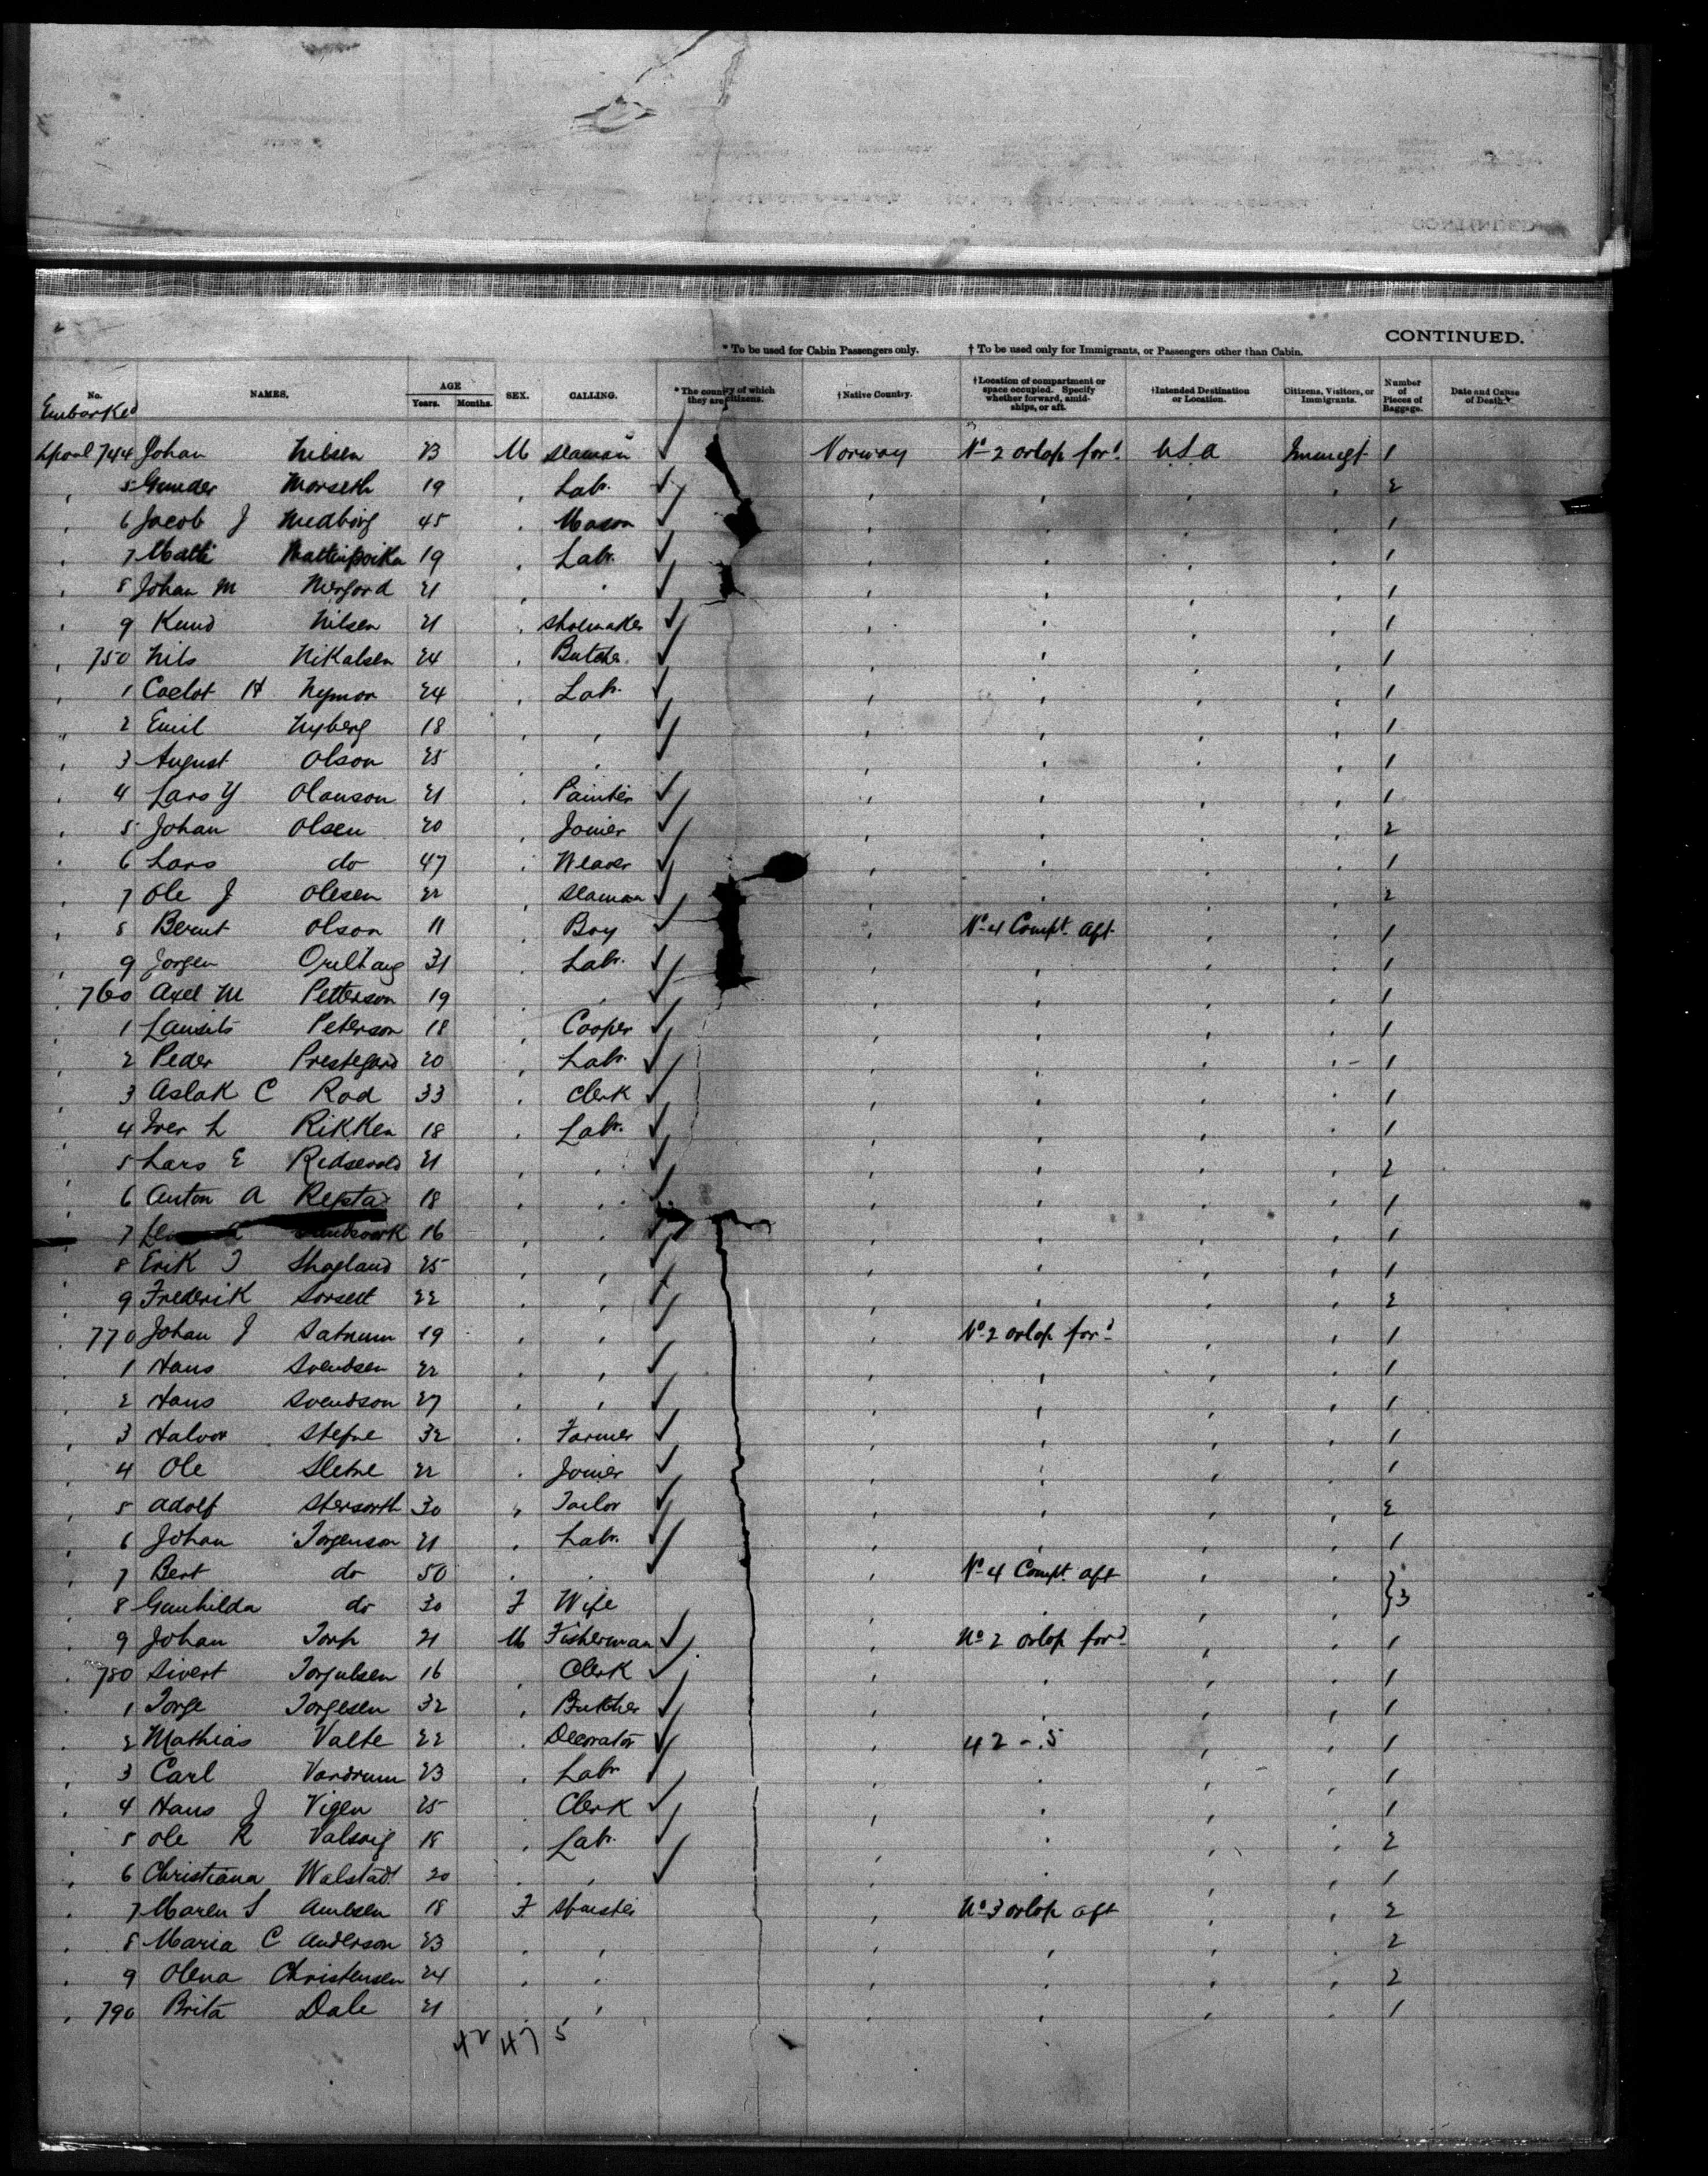 CONTINUED.
* To be used for Cabin Passengers only. † To be used only for Immigrants, or Passengers other than Cabin.
No. NAMES. AGE Years. Months. SEX. CALLING. * The country of which they are citizens. † Native Country. † Location of compartment or space occupied. Specify whether forward, amidships, or aft. † Intended Destination or Location. Citizens, Visitors, or Immigrants. Number of Pieces of Baggage. Date and Cause of Death.
Embarked
Lpool 744 Johan Nilsen 23 M Seaman ✓ Norway No 2 orlop ford USA Immigt 1
" 5 Gunder Morseth 19 " Labr. ✓ " " " " 2
" 6 Jacob J Medborg 45 " Mason ✓ " " " " 1
" 7 Matti 19 " Labr. ✓ " " " " 1
" 8 Johan M 21 " " ✓ " " " " 1
" 9 Knud Nilsen 21 " Shoemaker ✓ " " " " 1
" 750 Nils Nikalsen 24 " Butcher ✓ " " " " 1
" 1 H Nyman 24 " Labr. ✓ " " " " 1
" 2 Emil Nyberg 18 " " ✓ " " " " 1
" 3 August Olson 25 " " ✓ " " " " 1
" 4 Lars Y Olauson 21 " Painter ✓ " " " " 1
" 5 Johan Olsen 20 " Joiner ✓ " " " " 2
" 6 Lars do 47 " Weaver ✓ " " " " 1
" 7 Ole J Olesen 22 " Seaman ✓ " " " " 2
" 8 Bernt Olson 11 " Boy ✓ " No 4 Compt. aft " " 1
" 9 Jorgen 31 " Labr. ✓ " " " " 1
" 760 Axel M Petterson 19 " " ✓ " " " " 1
" 1 Peterson 18 " Cooper ✓ " " " " 1
" 2 Peder Prestegard 20 " Labr. ✓ " " " " 1
" 3 Aslak C Rod 33 " Clerk ✓ " " " " 1
" 4 Iver L Rikken 18 " Labr. ✓ " " " " 1
" 5 Lars E 21 " " ✓ " " " " 2
" 6 Anton A Repsta 18 " " ✓ " " " " 1
" 7 16 " " ✓ " " " " 1
" 8 Erik T Skogland 25 " " ✓ " " " " 1
" 9 Frederik Sorsett 22 " " ✓ " " " " 2
" 770 Johan J Satnum 19 " " " No 2 orlop ford " " 1
" 1 Hans Svendsen 22 " " ✓ " " " " 1
" 2 Hans Svendson 27 " " ✓ " " " " 1
" 3 Halvor Stefne 32 " Farmer ✓ " " " " 1
" 4 Ole Sletne 22 " Joiner ✓ " " " " 1
" 5 Adolf 30 " Tailor ✓ " " " " 2
" 6 Johan Torgenson 21 " Labr. ✓ " " " " 1
" 7 Bert do 50 " " ✓ " No 4 Compt. aft " " } 3
" 8 Gunhilda do 30 F Wife " " " "
" 9 Johan Torp 21 M Fisherman ✓ " No 2 orlop ford " " 1
" 780 Sivert Torjulsen 16 " Clerk ✓ " " " " 1
" 1 Torge Torgesen 32 " Butcher ✓ " " " " 1
" 2 Mathias Valte 22 " Decorator ✓ " 42 - 5 " " 1
" 3 Carl Vardrum 23 " Labr ✓ " " " " 1
" 4 Hans J Vigen 25 " Clerk ✓ " " " " 1
" 5 Ole R Valsvig 18 " Labr. ✓ " " " " 2
" 6 Christiana Walstadt 20 " " ✓ " " " " 1
" 7 Maren S 18 F Spinster " No 3 orlop aft " " 2
" 8 Maria C Anderson 23 " " " " " " 2
" 9 Olena Christensen 24 " " " " " " 2
" 790 Brita Dale 21 " " " " " " 1
42 47 5